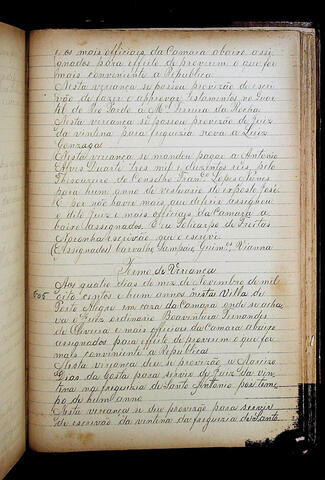 e os mais officiais da Camara abaixo assi-
gnados para effeito de proverem o que for
mais conveniente a Republica
Nesta veriança se passou provizão de escri-
vão de fazer e approvar testamentos no Quar-
tel do Rio Pardo a Mel Pereira da Rocha.
Nesta veriança se passou provizão de Juiz
da vintena para freguezia nova a Luiz
Gonzaga
Nesta veriança se mandou pagar a Antonio
Alves Duarte tres mil e duzentos reis, pelo
Thesoureiro do Conselho Franco Lopes Nunes
para hum anno de vestuario do exposto José.
E por não haver mais que deferir assignou
o dito Juiz e mais officiais da Camara a
baixo assignados. Eu Policarpo de Freitas
Noronha escrivão que o escrevi
(Assignados) Carvalho, Sampaio, Guimes, Vianna
Termo de Veriança
Aos quatro dias do mez de Novembro de mil
oito centos e hum annos nesta Villa de
Porto Alegre em caza da Camara onde se acha-
va o Juiz ordinario Boaventura Fernandes
de Oliveira e mais officiais da Camara abaixo
assignados para effeito de proverem o que for
mais conviniente a Republica
Nesta veriança deu se provizão a Narcizo
Dias da Costa para servir de Juiz da vin-
tena na freguezia de Santo Antonio por tem-
po de hum anno
Nesta veriança se deu provizão para servir
de escrivão da vintena da freguezia de Santo